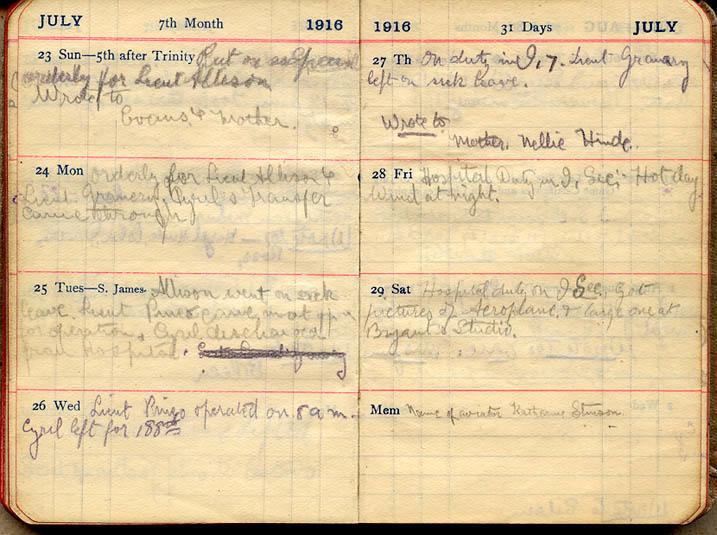 JULY 7th Month 1916
23 Sun—5th after Trinity Put on as Special
orderly for Lieut Allison
Wrote to
Evans & Mother.
24 Mon orderly for Lieut Allison &
Lieut Cyril's Transfer
came through
25 Tues—S. James. Allison went on sick
leave, Lieut Pingo came in at pm
for operation, Cyril discharged
from Hospital.
26 Wed Lieut Pingo operated on. 8 a.m.
Cyril left for 188th
1916 31 Days JULY
27 Th On duty in I, 7. Lieut
left on sick leave.
Wrote to
Mother, Nellie Hinde.
28 Fri Hospital Duty in I, Sec; Hot day
Wind at night.
29 Sat Hospital duty on I Sec, got
pictures of Aeroplane, & large one at
Bryant's Studio.
Mem Name of aviator Katharine Stinson